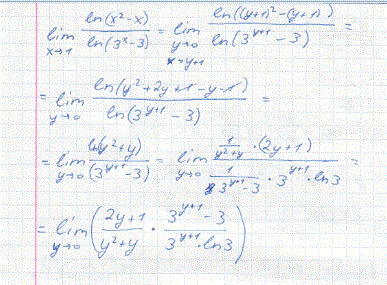 lim_{x→1} ln(x²-x)/ln(3ˣ-3) = lim_{y→0, x=y+1} ln((y+1)²-(y+1))/ln(3^{y+1}-3) =
= lim_{y→0} ln(y²+2y+1-y-1)/ln(3^{y+1}-3) =
= lim_{y→0} ln(y²+y)/(3^{y+1}-3) = lim_{y→0} (1/(y²+y)·(2y+1))/(1/(3^{y+1}-3)·3^{y+1}·ln3) =
= lim_{y→0} ((2y+1)/(y²+y) · (3^{y+1}-3)/(3^{y+1}·ln3))